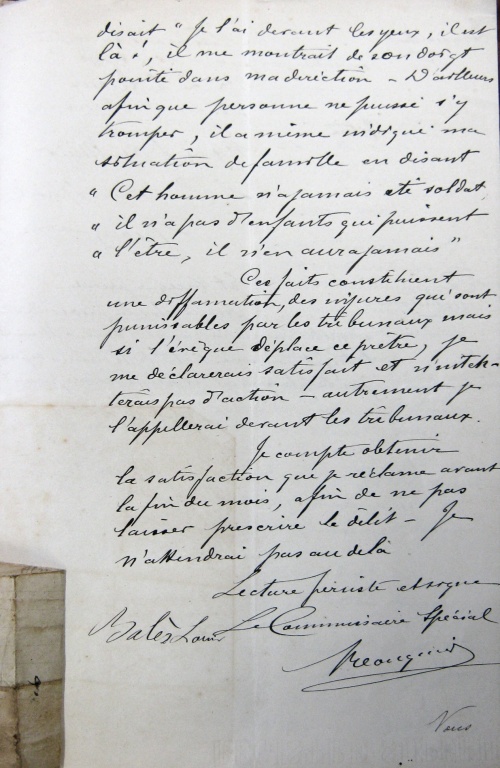 disait " Je l'ai devant les yeux, il est
là !, il me montrait de son doigt
pointé dans ma direction - D'ailleurs
afin que personne ne puisse s'y
tromper, il a même indiqué ma
situation de famille en disant
" Cet homme n'a jamais été soldat,
" il n'a pas d'enfants qui puissent
" l'être, il n'en aura jamais "
Ces faits constituent
une diffamation, des injures qui sont
punissables par les tribunaux mais
si l'évêque déplace ce prêtre, je
me déclarerais satisfait et n'inten-
terais pas d'action - autrement je
l'appellerai devant les tribunaux.
Je compte obtenir
la satisfaction que je réclame avant
la fin du mois, afin de ne pas
laisser prescrire le délit - Je
n'attendrai pas au delà
Lecture persiste et signe
Le Commissaire Spécial
Balès Louis
Vous